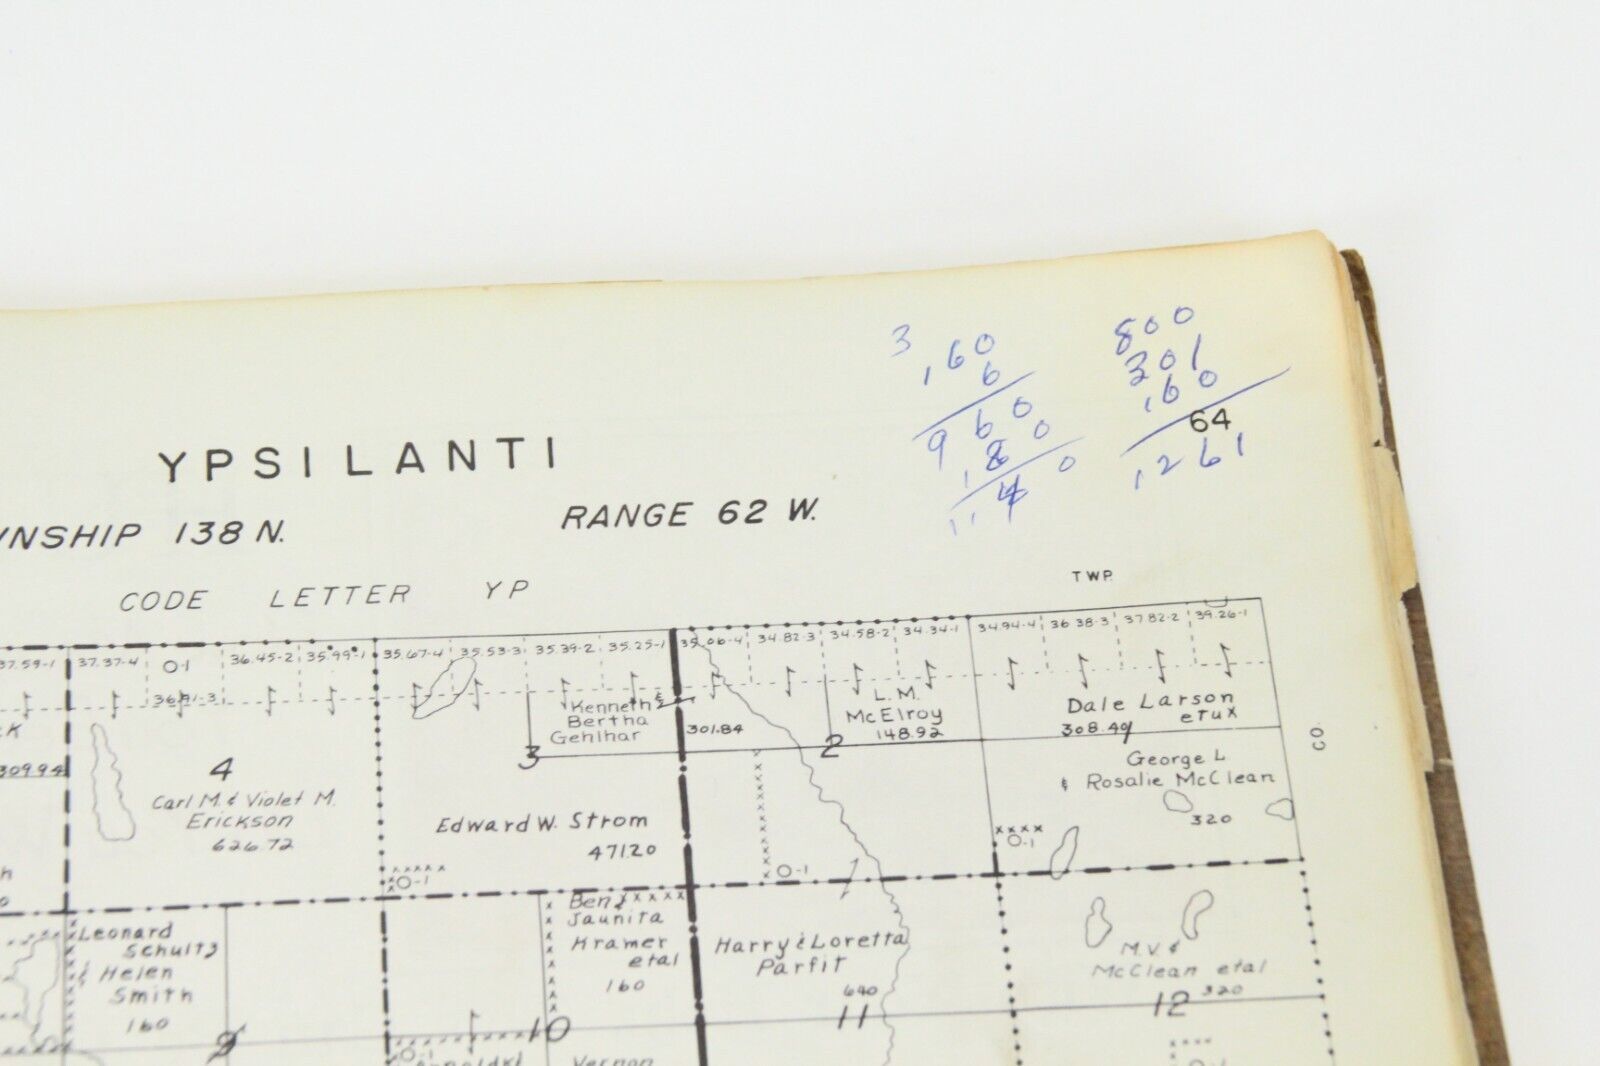 3
160
6
960
180
800
301
160
64
1261
YPSILANTI
WNSHIP 138 N. RANGE 62 W.
CODE LETTER YP
TWP.
37.59-1 37.37-4 O-1 36.45-2 35.99-1 35.67-4 35.53-3 35.39-2 35.25-1 35.06-4 34.82-3 34.58-2 34.34-1 34.94-4 36.38-3 37.82-2 39.26-1
36.91-3
CK
309.94
4
Carl M. & Violet M.
Erickson
626.72
Kenneth &
Bertha
Gehlhar
3
Edward W. Strom
471.20
O-1
301.84
L. M.
McElroy
148.92
2
O-1
Dale Larson
etux
308.40
CO.
George L
& Rosalie McClean
320
O-1
h
0
Leonard
Schultz
& Helen
Smith
160
9
Ben &
Jaunita
Kramer
etal
160
10
O-1
Harry & Loretta
Parfit
640
11
Vernon
M.V. &
McClean etal
320
12
O-1